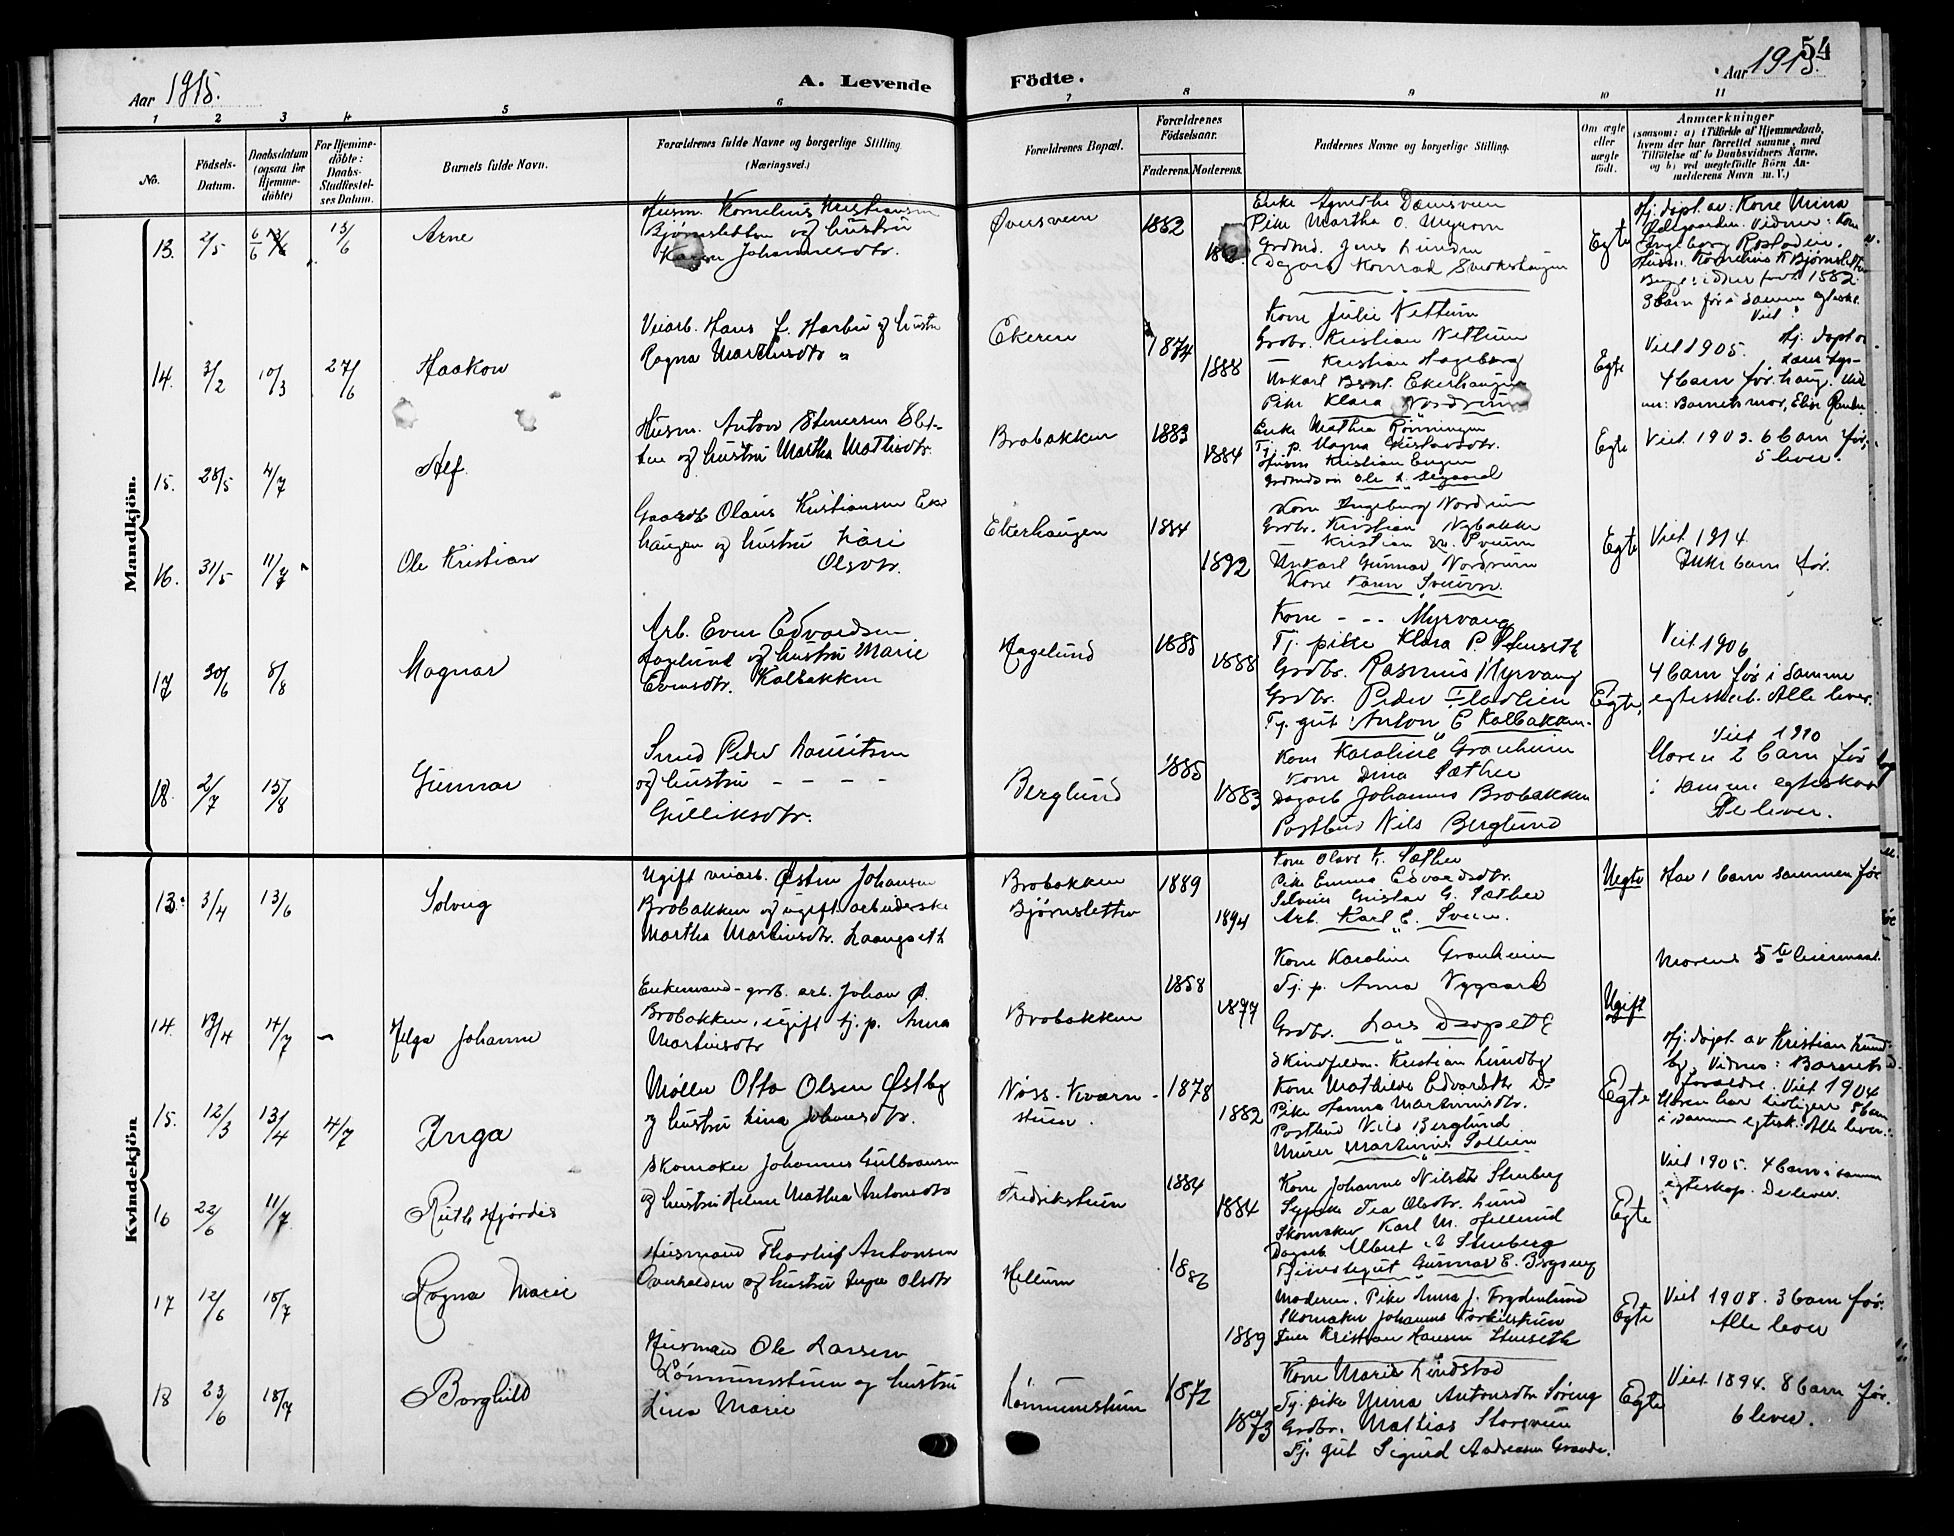 54
Aar 1915.
A. Levende
Födte.
Aar 1915.
1 2 3 4 5 6 7 8 9 10 11
No.
Födsels-Datum.
Daabsdatum (ogsaa för Hjemme-döbte)
For Hjemme-döbte: Daabs-Stadfæstel-ses Datum.
Barnets fulde Navn.
Forældrenes fulde Navne og borgerlige Stilling (Næringsvei.)
Forældrenes Bopæl.
Forældrenes Födselsaar.
Faderens. Moderens.
Faddernes Navne og borgerlige Stilling.
Om ægte eller uægte födt.
Anmærkninger
(saasom: a) i Tilfælde af Hjemmedaab, hvem der har forrettet samme, med Tilföielse af to Daabsvidners Navne, og b) ved uægtefödte Börn An-melderens Navn m. V.)
Mandkjön.
13. 2/5 13/6 Arne
Husm. Kornelius Kristiansen
Bjørnsletten og hustru
Karen Johannesdtr.
Øversveen 1882
Enke Agnethe Dæmsveen
Pike Martha O. Myrom
Grdmd. Jens Linden
Dagarb Konrad
Egte
Hj. døpt av: Kone Mina
3 barn før i samme egtesk.
14. 3/2 10/3 27/6 Haakon
Veiarb. Hans L. Harbu og hustru
Ragna Martinsdtr.
Ekeren 1874 1888
Kone Julie Nettum
Grdbr. Kristian Nettum
— Kristian Hageberg
Unkarl Bernt Ekerhaugen
Pike Klara Nordrum
Egte
Viet 1905. Hj. døpt av
4 barn før.
Barnets mor, Elise
15. 28/5 4/7 Alf
Husm. Anton Stenersen Slet-
ten og hustru Martha Mathisdtr.
Brobakken 1883 1884
Enke Mathea Rønningen
Tj. p. Magna Gustavsdtr.
Husm Kristian Engen
Egte
Viet 1903. 6 barn før,
5 lever.
16. 31/5 11/7 Ole Kristian
Gaardbr Olaus Kristiansen Eker
haugen og hustru Kari
Olsdtr.
Ekerhaugen 1884 1892
Kone Ingeborg Nordrum
Grdbr. Kristian Nybakke
Kristian M. Sveum
Unkarl Gunnar Nordrum
Kone Karen Sveum.
Egte
Viet 1914.
Ikke barn før.
17 30/6 8/8 Magnar
Arb. Even Edvardsen
Hagelund og hustru Marie
Evensdtr. Kalbakken
Hagelund 1885 1888
Kone - - - Myrvang
Tj. pike Klara P. Stenseth
Grdbr. Rasmus Myrvang
Grdbr. Peder Fladlien
Tj. gut Anton E Kalbakken.
Egte
Viet 1906
4 barn før i samme
egteskab. Alle lever.
18. 2/7 15/8 Gunnar
Smed Peder Lauritsen
og hustru - - - -
Gulliksdtr.
Berglund 1885 1883
Kone Karoline Granheim
Kone Dina Sæther
Dagarb Johannes Brobakken
Postbud Nils Berglund
Viet 1910
Moren 2 barn før
i samme egteskap
De lever.
Kvindekjön
13. 3/4 13/6 Solveig
Ugift veiarb. Østen Johansen
Brobakken og ugift arbeiderske
Martha Martinsdtr. Haugseth
Brobakken
Bjørnsletten
1889 1894
Kone Olava K. Sæther
Pike Emma Edvardsdtr.
Selveier Gustav G. Sæther
Arb. Karl E. Sveen.
Uegte
Har 1 barn sammen før
14. 19/4 14/7 — Helga Johanne
Enkemand - grdb. arb. Johan Ø.
Brobakken, ugift tj. p. Anna
Martinsdtr
Brobakken 1858 1877
Kone Karoline Granheim
Tj. p. Anna Nygaard
Grdbr. Lars Dæhseth
Ugift
Morens 5te leiermaal.
15. 12/3 13/4 4/7 Inga
Møller Otto Olsen Østby
og hustru Lina Johansdtr.
Nøss. Kværn-
stuen.
1878 1882
Skindfeldm. Kristian Lundby
Kone Mathilde Edvardsdtr Do
Pike Hanna Martinusdtr.
Postbud Nils Berglund
Murer Martinus Sollien
Egte
Hj. døpt av Kristian Lund-
by. Vidner: Barnets
forældre. Viet 1904
Moren har tidligere 5 barn
i samme egtesk. Alle lever.
16 22/6 11/7 Ruth Hjørdis
Skomaker Johannes Gulbransen
og hustru Helene Mathea Antonsdtr
Fredrikstuen 1884 1884
Kone Johanne Nilsdtr Stenberg
Sypike Tea Olsdtr. Lund
Skomaker Karl M. Hellerud
Dagarb. Albert A Stenberg
Tjenestegut Gunnar E. Brysveg
Egte
Viet 1905. 4 barn i samme
egteskap. De lever.
17 12/6 18/7 Ragna Marie
Husmand Thorleif Antonsen
Overhalden og hustru Inga Olsdtr
Hellum 1886 1889
Moderen. Pike Anna J. Frydenlund
Skomaker Johannes Torkilstuen
Kristian Hansen Stenseth
Egte
Viet 1908. 3 barn før.
Alle lever
18 23/6 18/7 Borghild
Husmand Ole Larsen
Lømmenstuen og hustru
Lina Marie
Lømmenstuen 1872 1873
Kone Marie Lindstad
Tj. pike Mina Antonsdtr Søring
Grdbr. Mathias Storsveen
Tj. gut Sigurd Andreasen Grande.
Egte
Viet 1894. 8 barn før.
6 lever.